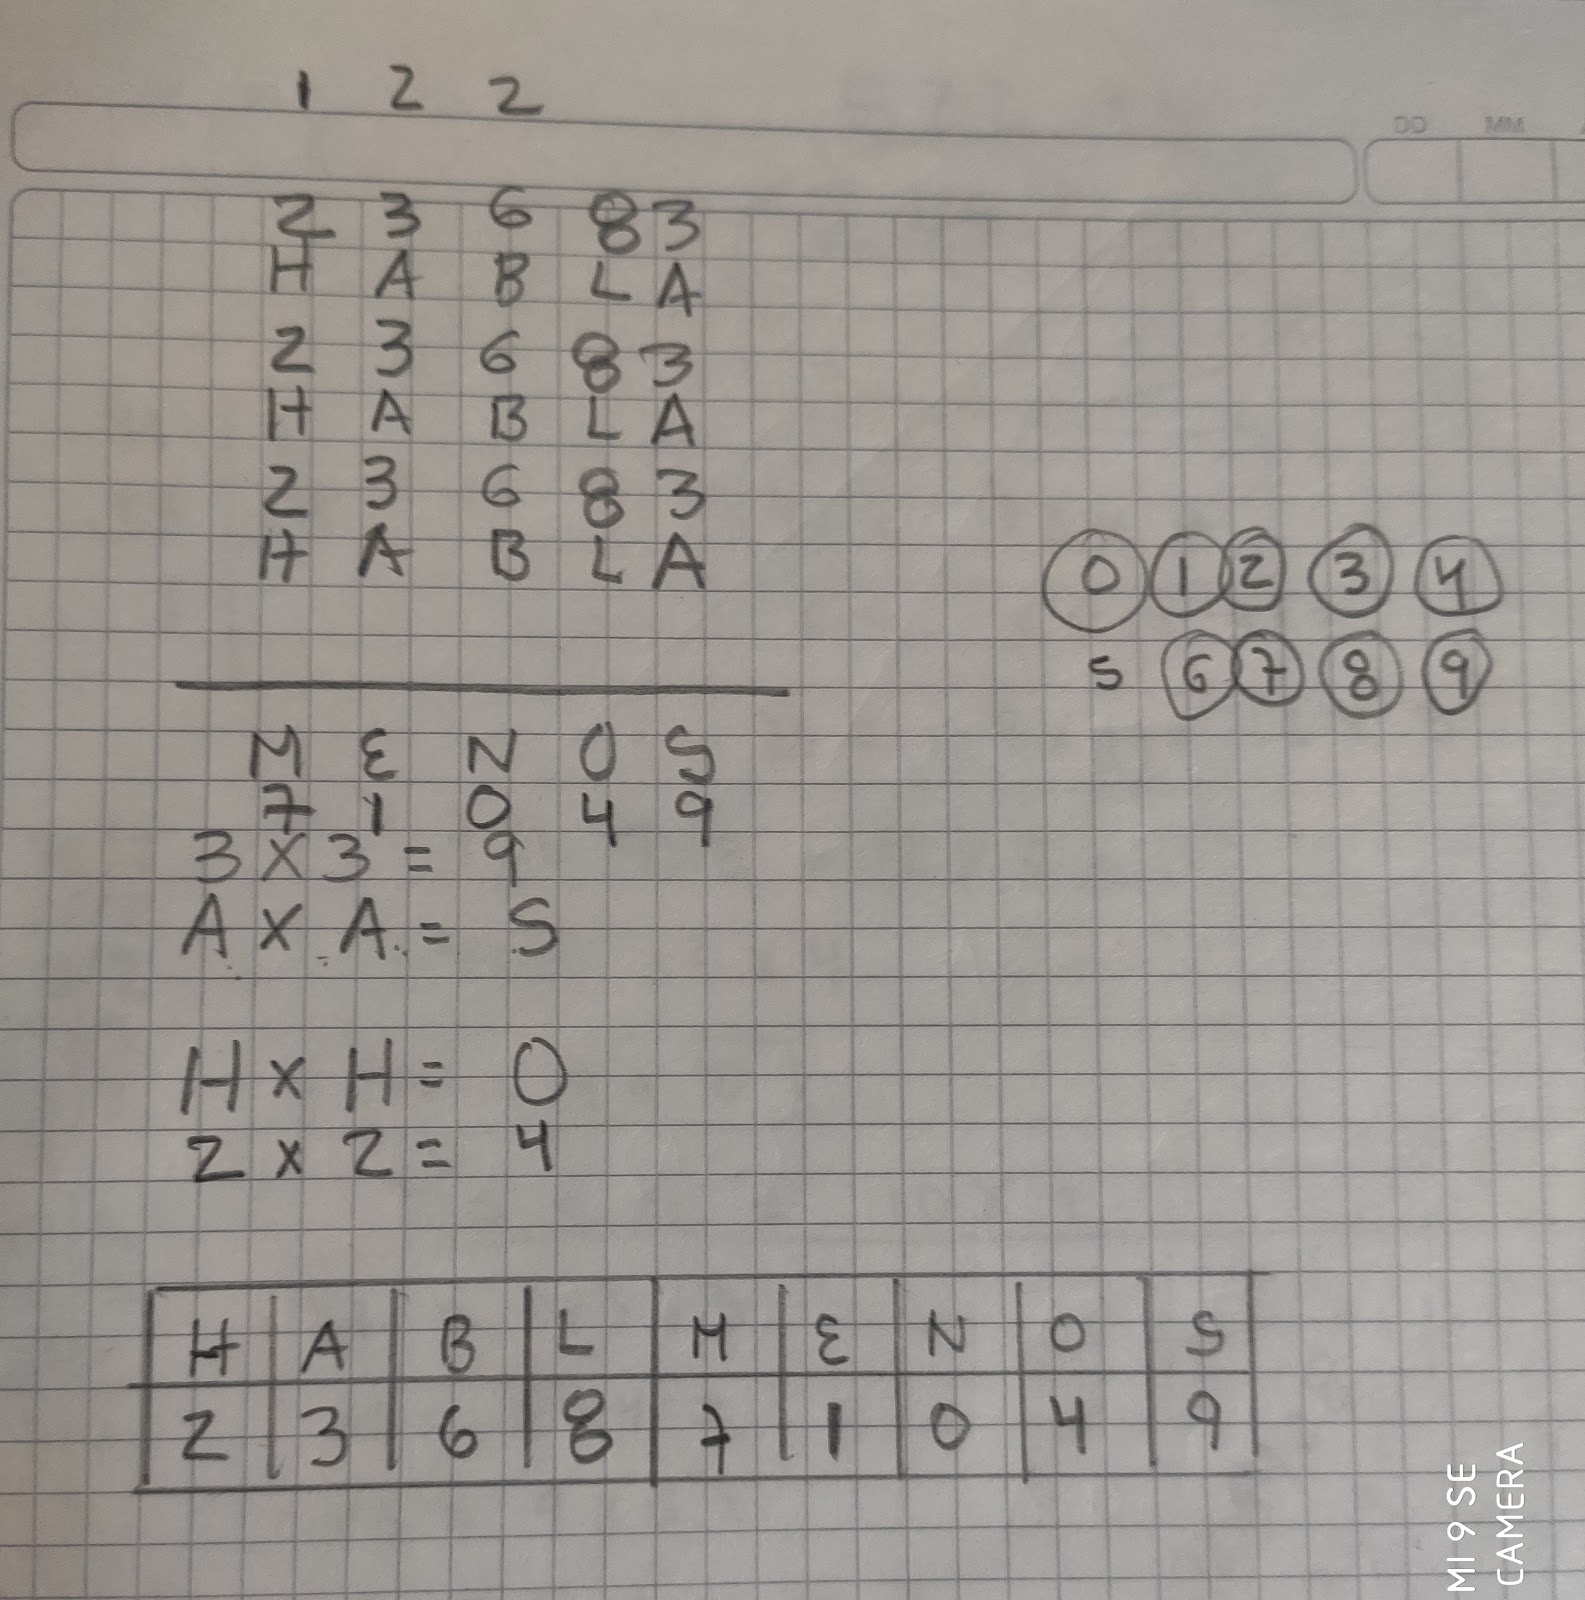 1 2 2
DD MM
2 3 6 8 3
H A B L A
2 3 6 8 3
H A B L A
2 3 6 8 3
H A B L A
0 1 2 3 4
5 6 7 8 9
M E N O S
7 1 0 4 9
3 X 3 = 9
A X A = S
H x H = O
2 x 2 = 4
H A B L M E N O S
2 3 6 8 7 1 0 4 9
MI 9 SE
CAMERA